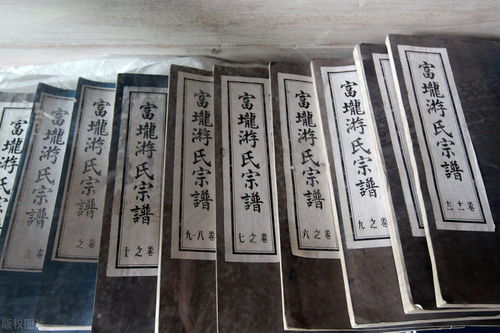 富壠游氏
富壠游氏宗譜
之
富壠游氏宗譜
卷之
富壠游氏宗譜
卷之十
富壠游氏宗譜
卷八-九
富壠游氏宗譜
卷之七
富壠游氏宗譜
卷之六
富壠游氏宗譜
卷之九
富壠游氏宗譜
版权图片